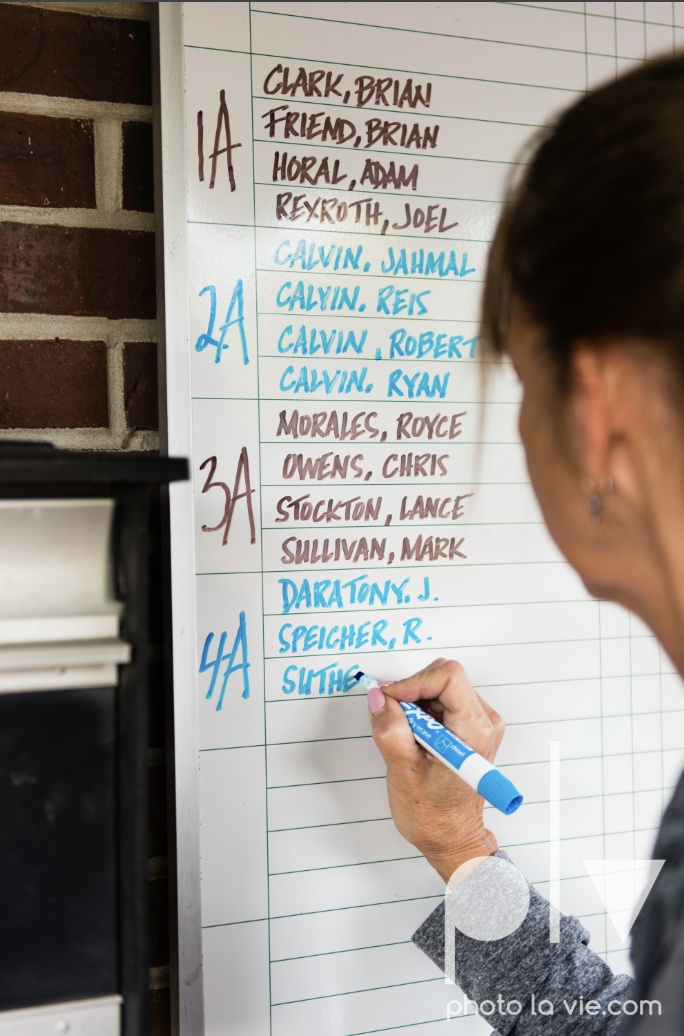 1A
CLARK, BRIAN
FRIEND, BRIAN
HORAL, ADAM
REXROTH, JOEL
2A
CALVIN. JAHMAL
CALVIN. REIS
CALVIN, ROBERT
CALVIN. RYAN
3A
MORALES, ROYCE
OWENS, CHRIS
STOCKTON, LANCE
SULLIVAN, MARK
4A
DARATONY. J.
SPEICHER, R.
SUTHE
EXPO
plv
photo la vie.com